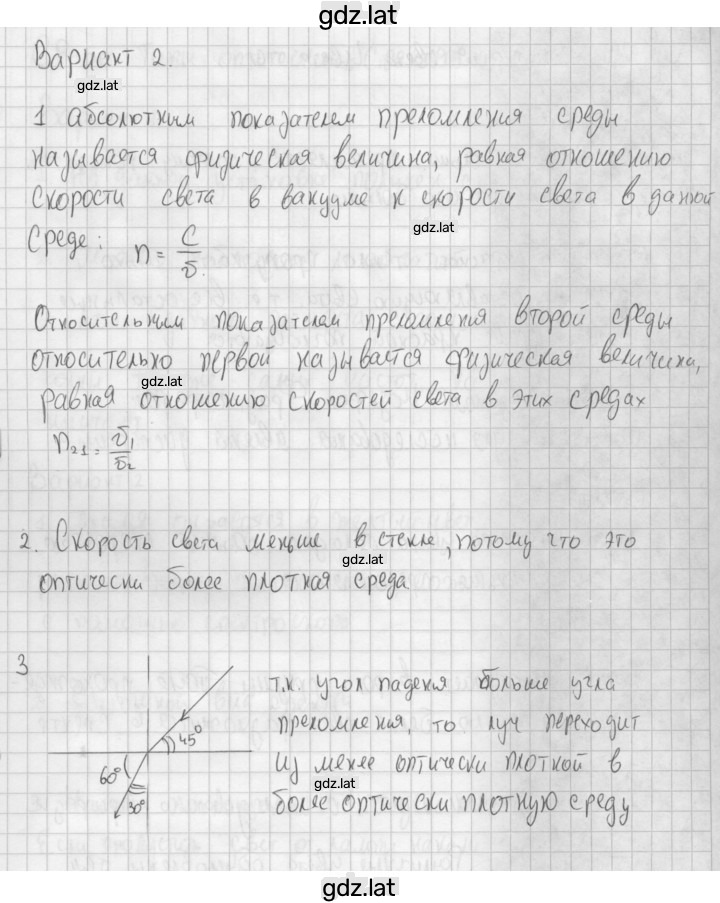 gdz.lat
Вариант 2.
gdz.lat
1 Абсолютным показателем преломления среды
называется физическая величина, равная отношению
скорости света в вакууме к скорости света в данной
gdz.lat
среде: n = c/υ.
Относительным показателем преломления второй среды
относительно первой называется физическая величина,
gdz.lat
равная отношению скоростей света в этих средах
n₂₁ = υ₁/υ₂
2. Скорость света меньше в стекле, потому что это
gdz.lat
оптически более плотная среда
3
т.к. угол паденья больше угла
преломления, то луч переходит
из менее оптически плотной в
gdz.lat
более оптически плотную среду
45°
60°
30°
gdz.lat
gdz.lat